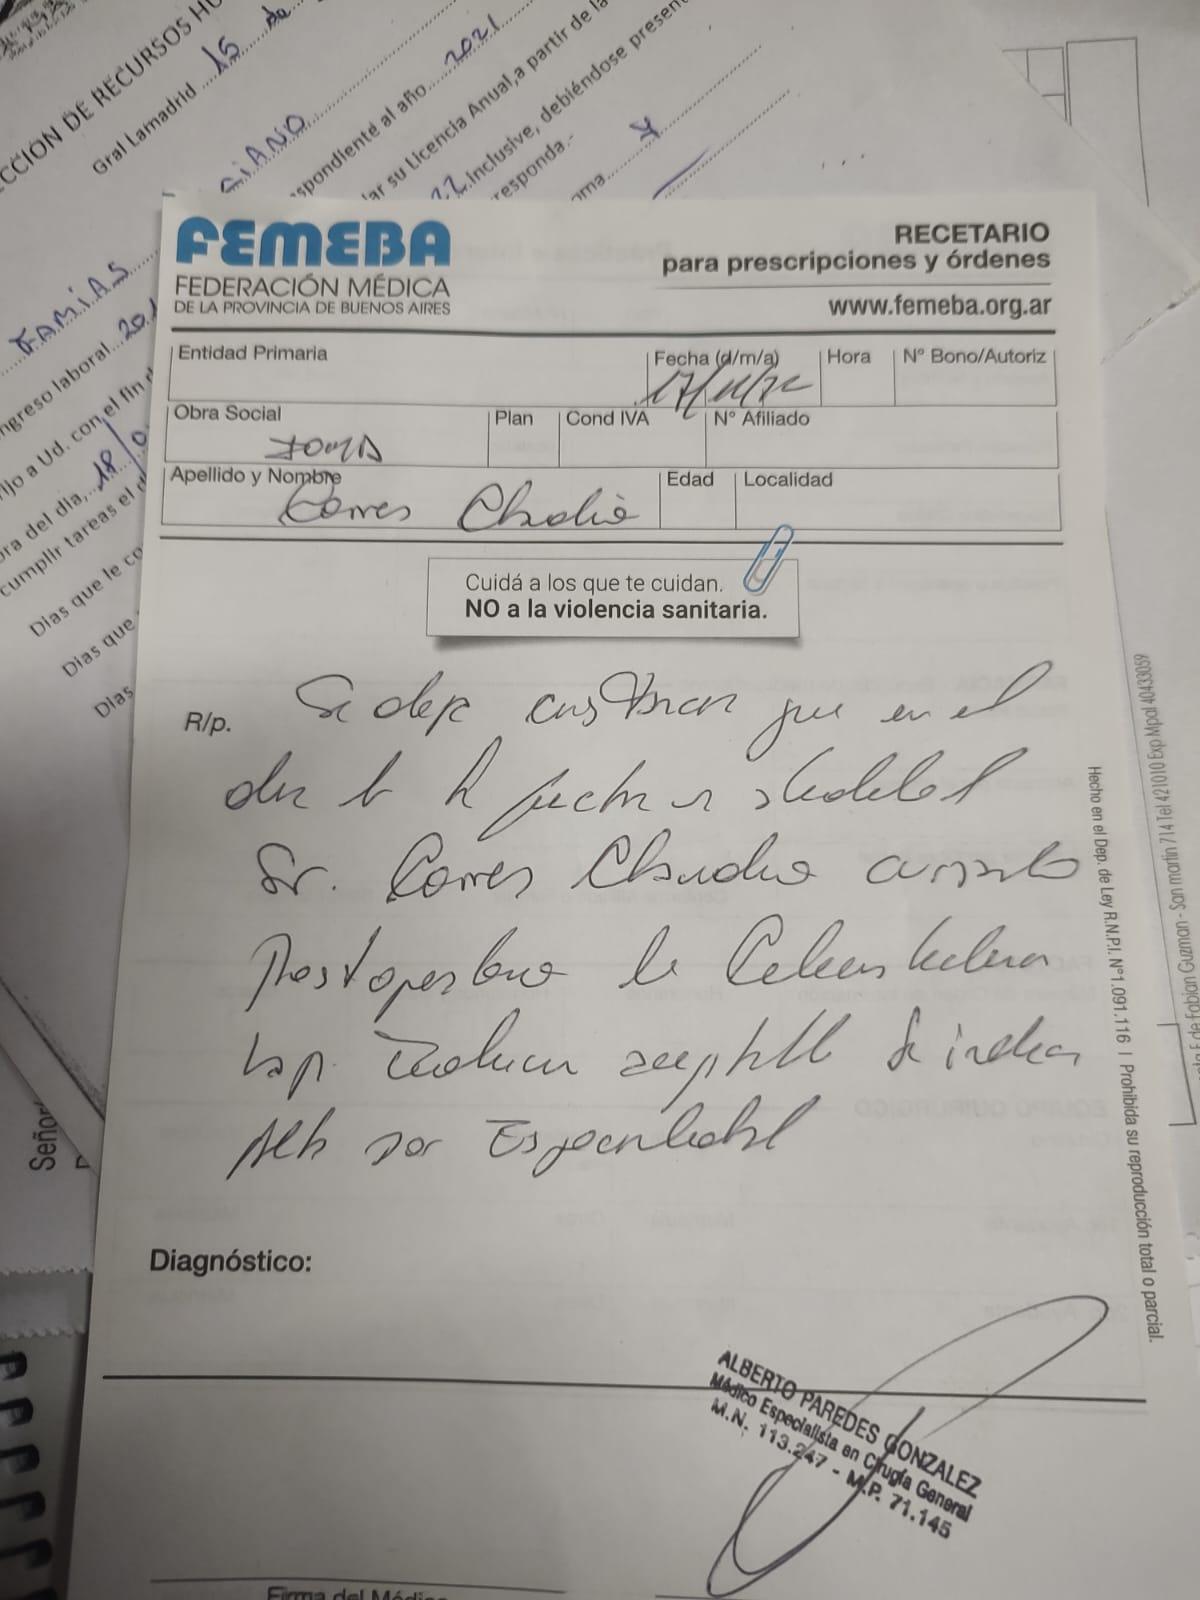 CCIÓN DE RECURSOS HU
Gral Lamadrid 15 de
spondiente al año 2021
ar su Licencia Anual, a partir de la
22 Inclusive, debiéndose present
responda.-
FEMEBA
FEDERACIÓN MÉDICA
DE LA PROVINCIA DE BUENOS AIRES
RECETARIO
para prescripciones y órdenes
www.femeba.org.ar
Entidad Primaria
Fecha (d/m/a)
Hora
N° Bono/Autoriz
Obra Social
IOMA
Plan
Cond IVA
N° Afiliado
Apellido y Nombre
Edad
Localidad
Cuidá a los que te cuidan.
NO a la violencia sanitaria.
R/p.
Se deja constancia que en el
día de la fecha
Sr. Claudio
Postoperatorio de
Lap. Se indica
Alta por Especialidad
Diagnóstico:
ALBERTO PAREDES GONZALEZ
Médico Especialista en Cirugía General
M.N. 113.247 - M.P. 71.145
Firma del Médico
Hecho en el Dep. de Ley R.N.P.I. N°1.091.116 I Prohibida su reproducción total o parcial.
de Fabian Guzman - San martin 714 Tel 421010
ngreso laboral
ijo a Ud. con el fin d
ra del día 18/0
cumplir tareas el d
Dias que le co
Dias que
Dias
Señor